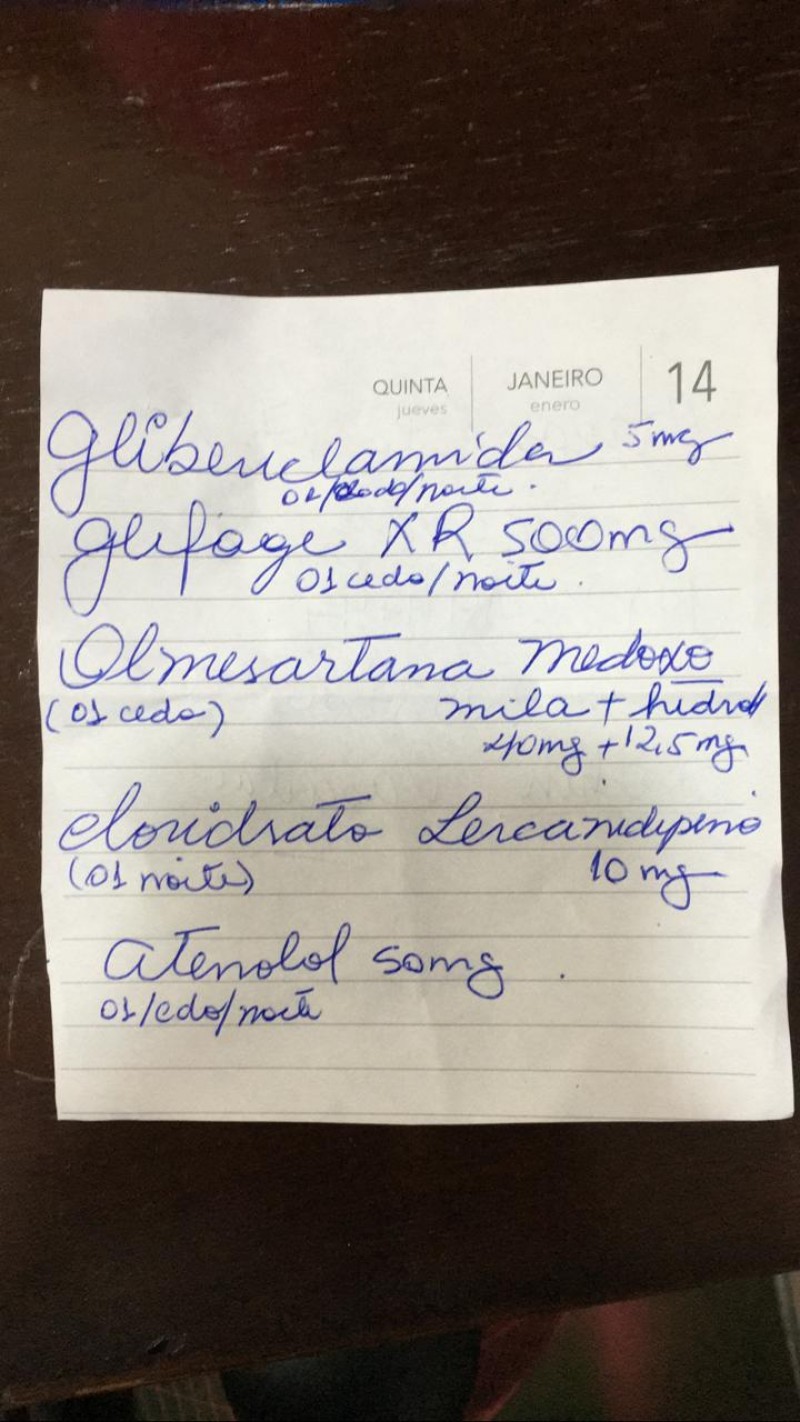 QUINTA JANEIRO 14
jueves enero
Glibenclamida 5mg
01/cedo/noite.
Glifage XR 500mg
01 cedo/noite.
Olmesartana Medoxo
(01 cedo) mila + hidro
40mg + 12,5mg
Cloridrato Lercanidipino
(01 noite) 10mg
Atenolol 50mg.
01/cedo/noite